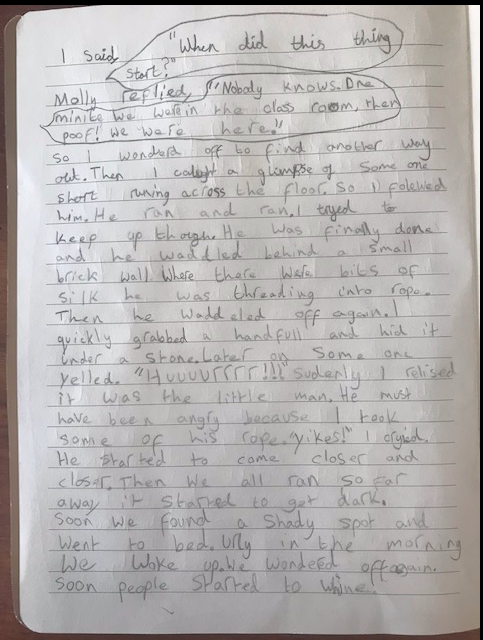 I said "When did this thing
start?"
Molly replied, "Nobody knows. One
minite we were in the class room, then
poof! we were here."
So I wonderd off to find another way
out. Then I caught a glimpse of some one
short runing across the floor. So I folewed
him. He ran and ran. I tryed to
keep up though. He was finally done
and he waddled behind a small
brick wall. Where there were bits of
silk he was threading into rope.
Then he waddeled off again. I
quickly grabbed a handfull and hid it
under a stone. Later on some one
yelled. "HUUUURRRR!!!" Sudenly I relised
it was the little man. He must
have been angry because I took
some of his rope. "Yikes!" I cryed.
He started to come closer and
closer. Then we all ran so far
away it started to get dark.
Soon we found a shady spot and
went to bed. Urly in the morning
we woke up. We wondered off again.
Soon people started to whine.